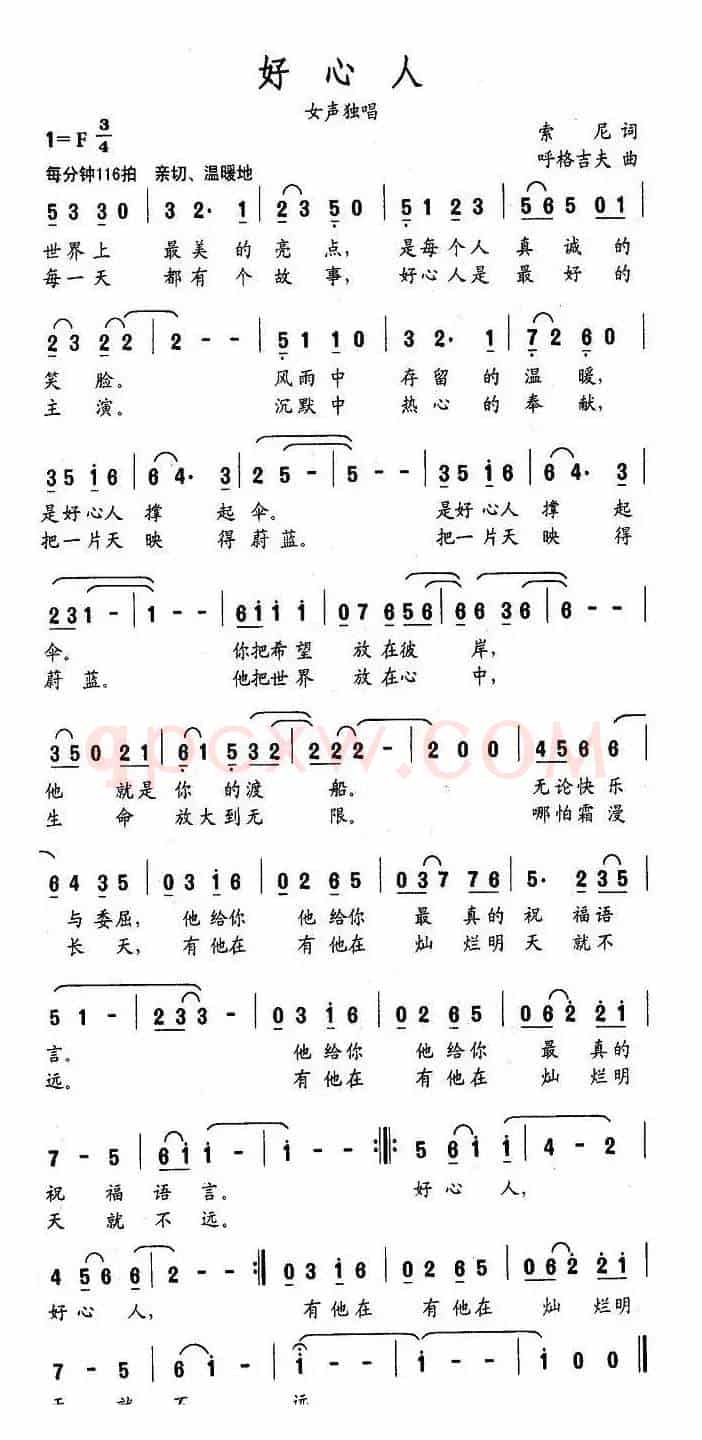 好心人
女声独唱
1=F 3/4
索尼 词
呼格吉夫 曲
每分钟116拍 亲切、温暖地
5 3 3 0 | 3 2· 1 | 2 3 5 0 | 5 1 2 3 | 5 6 5 0 1 |
世界上 最美的亮点, 是每个人真诚的
每一天 都有个故事, 好心人是最好的
2 3 2 2 | 2 - - | 5 1 1 0 | 3 2· 1 | 7 2 6 0 |
笑脸。 风雨中 存留的温暖,
主演。 沉默中 热心的奉献,
3 5 i 6 | 6 4· 3 | 2 5 - | 5 - - | 3 5 i 6 | 6 4· 3 |
是好心人撑起伞。 是好心人撑起
把一片天映得蔚蓝。 把一片天映得
2 3 1 - | 1 - - | 6 i i i | 0 7 6 5 6 | 6 6 3 6 | 6 - - |
伞。 你把希望 放在彼岸,
蔚蓝。 他把世界 放在心中,
3 5 0 2 1 | 6 1 5 3 2 | 2 2 2 - | 2 0 0 | 4 5 6 6 |
他 就是你的渡船。 无论快乐
生命 放大到无限。 哪怕霜漫
qpcxw.COM
6 4 3 5 | 0 3 i 6 | 0 2 6 5 | 0 3 7 7 6 | 5· 2 3 5 |
与委屈, 他给你 他给你 最真的祝福语
长天, 有他在 有他在 灿烂明天就不
5 1 - | 2 3 3 - | 0 3 i 6 | 0 2 6 5 | 0 6 2 2 i |
言。 他给你 他给你 最真的
远。 有他在 有他在 灿烂明
7 - 5 | 6 i i - | i - - :||: 5 6 i i | i - - |
祝福语言。 好心人,
天就不远。
4 5 6 6 | 2 - - :|| 0 3 i 6 | 0 2 6 5 | 0 6 2 2 i |
好心人, 有他在 有他在 灿烂明
7 - 5 | 6 i - | i - - | i - - | i 0 0 ||
天就不远